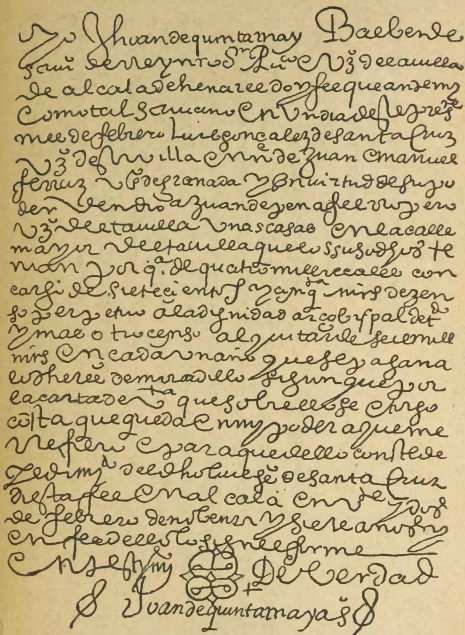 Yo Jhoan de quintarnaya Baeben de
scriu del Reyno s.or pu.co e Vz.o de la uilla
de alcala de henares doy fee que ante my
como tal scriuano en Vn dia deste pres.te
mes de febrero luis gonçalez de santa cruz
Vz.o de seuilla en n.e de Juan emanuel
ferruz Vz.o de granada y en virtud de su po
der Vendio a Juan de pena herrero
Vz.o de esta uilla Vnas casas en la calle
mayor de esta uilla que los suso dhos te
nian por q.a de quatro mill reales con
cargo de sietecientos y cinq.a mrs de zen
so perpetuo a la dignidad arcobispal de t.o
y mas otro censo al quitar de seis mill
mrs en cada Vn año que se paga a na
los hereds de moradillo segun que por
la carta de V.ta que sobre ello se otorgo
costa que queda en my poder a que me
Refiero e para que dello conste de
pedim.o del dho luis gs de santa cruz
di esta fee en alcala en V.te y dos
de febrero de nobenta y siete años y
en fee dello lo signe e firme
en testim.o De Verdad
Juan de quintarnaya s.o